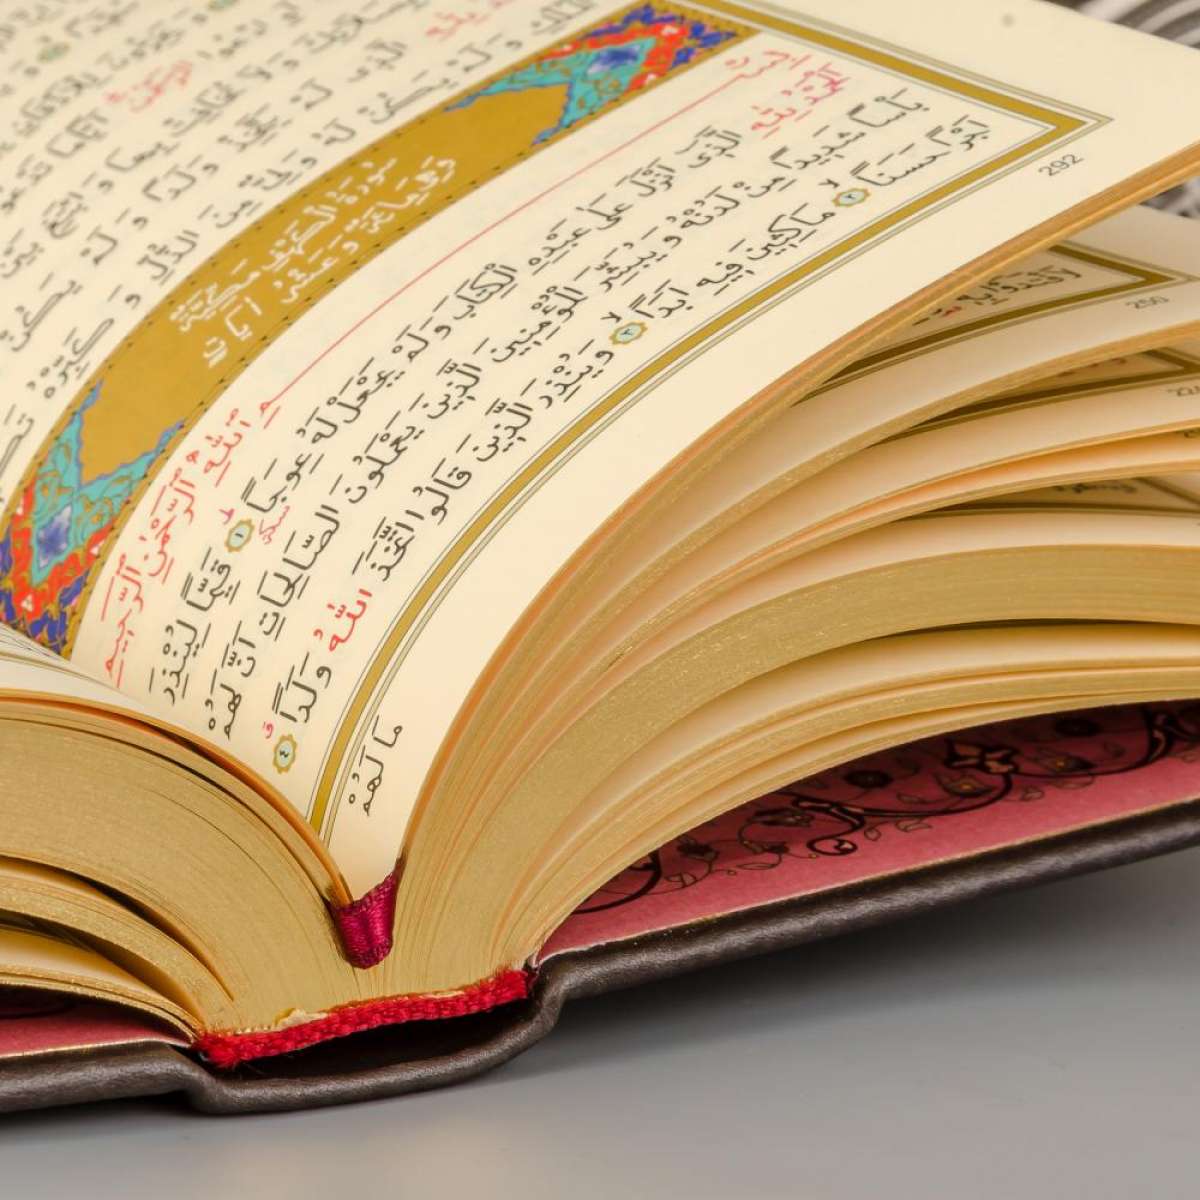 الرَّحْمٰنَ اَيًّا مَا تَدْعُوا
وَلَا تُخَافِتْ بِهَا وَابْتَغِ بَيْنَ
الَّذٖى لَمْ يَتَّخِذْ وَلَدًا وَلَمْ يَكُنْ
وَلَمْ يَكُنْ لَهُ وَلِىٌّ مِنَ الذُّلِّ وَكَبِّرْهُ
سُورَةُ الْكَهْفِ مَكِّيَّةٌ
وَهِىَ مِائَةٌ وَعَشْرُ اٰيَاتٍ
بِسْمِ اللّٰهِ الرَّحْمٰنِ الرَّحٖيمِ
اَلْحَمْدُ لِلّٰهِ الَّذٖى اَنْزَلَ عَلٰى عَبْدِهِ الْكِتَابَ وَلَمْ يَجْعَلْ لَهُ عِوَجًا ١ قَيِّمًا لِيُنْذِرَ
بَاْسًا شَدٖيدًا مِنْ لَدُنْهُ وَيُبَشِّرَ الْمُؤْمِنٖينَ الَّذٖينَ يَعْمَلُونَ الصَّالِحَاتِ اَنَّ لَهُمْ
اَجْرًا حَسَنًا ٢ مَاكِثٖينَ فٖيهِ اَبَدًا ٣ وَيُنْذِرَ الَّذٖينَ قَالُوا اتَّخَذَ اللّٰهُ وَلَدًا ٤
مَا لَهُمْ
292
250